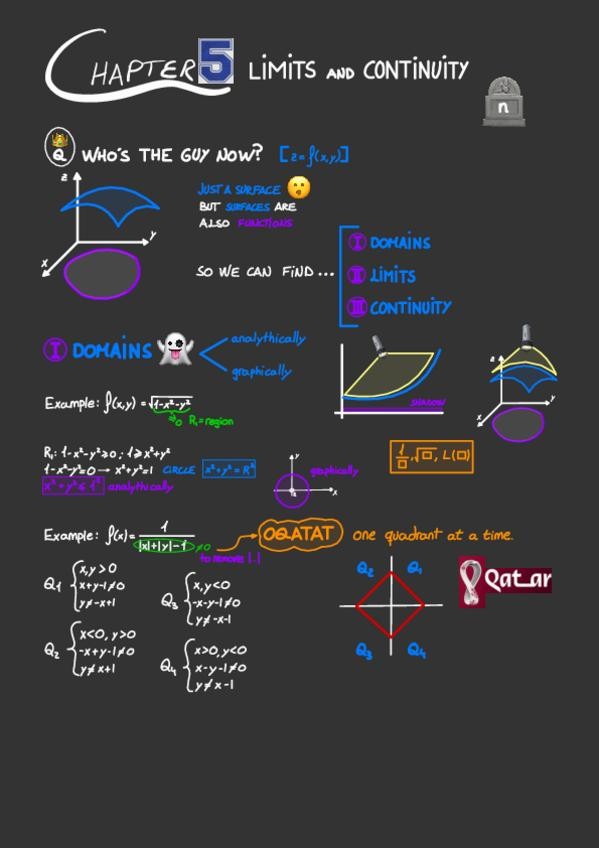 CHAPTER 5 LIMITS AND CONTINUITY
n
Q WHO'S THE GUY NOW? [z=f(x,y)]
z
y
x
JUST A SURFACE
BUT SURFACES ARE
ALSO FUNCTIONS
SO WE CAN FIND...
I DOMAINS
II LIMITS
III CONTINUITY
I DOMAINS
analythically
graphically
SHADOW
z
y
x
Example: f(x,y) = √1-x²-y²
≥0 R₁=region
R₁: 1-x²-y²≥0; 1≥x²+y²
1-x²-y²=0 → x²+y²=1 CIRCLE x²+y²=R²
x²+y²≤1² analythically
y
x
graphically
1/□, √□, L(□)
Example: f(x)= 1/|x|+|y|-1 ≠0
to remove |.|
OQATAT one quadrant at a time.
Q1 { x,y>0
x+y-1≠0
y≠-x+1
Q2 { x<0, y>0
-x+y-1≠0
y≠x+1
Q3 { x,y<0
-x-y-1≠0
y≠-x-1
Q4 { x>0, y<0
x-y-1≠0
y≠x-1
Q2 Q1
Q3 Q4
Qat_ar